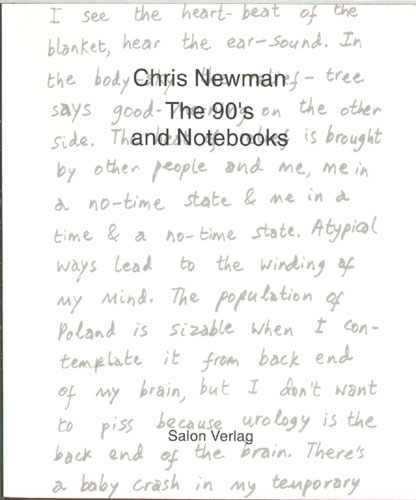 I see the heart-beat of the
blanket, hear the ear-sound. In
the body
Chris Newman
tree
says good-
The 90's
on the other
side. The
and Notebooks
is brought
by other people and me, me in
a no-time state & me in a
time & a no-time state. Atypical
ways lead to the winding of
my mind. The population of
Poland is sizable when I con-
template it from back end
of my brain, but I don't want
to piss because urology is the
Salon Verlag
back end of the brain. There's
a baby crash in my temporary